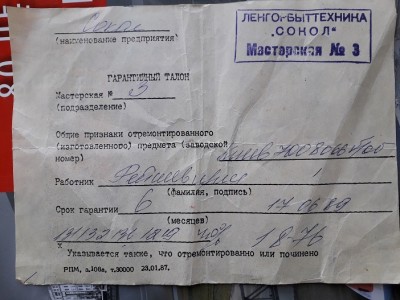 Сокол
(наименование предприятия)
ЛЕНГОРБЫТТЕХНИКА
„СОКОЛ"
Мастерская № 3
ГАРАНТИЙНЫЙ ТАЛОН
Мастерская № 3
(подразделение)
Общие признаки отремонтированного
(изготовленного) предмета (заводской
номер)
Работник
(фамилия, подпись)
Срок гарантии 6 17 06 89
(месяцев)
18-76
х Указывается также, что отремонтировано или починено
РПМ, з.106а, т.30000 23.01.87.